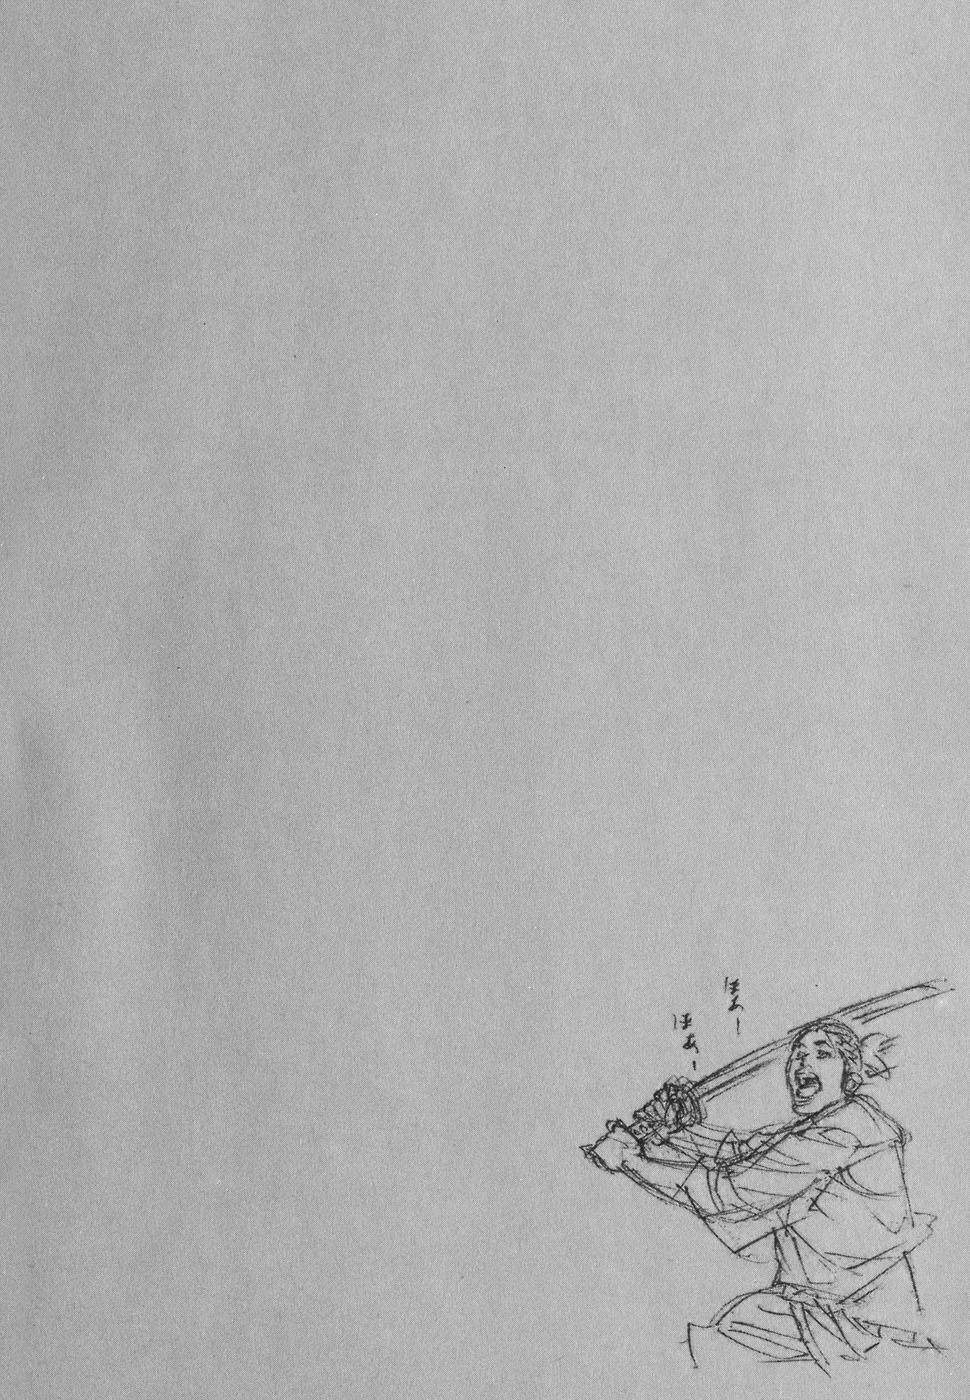 ほあー
ほあー